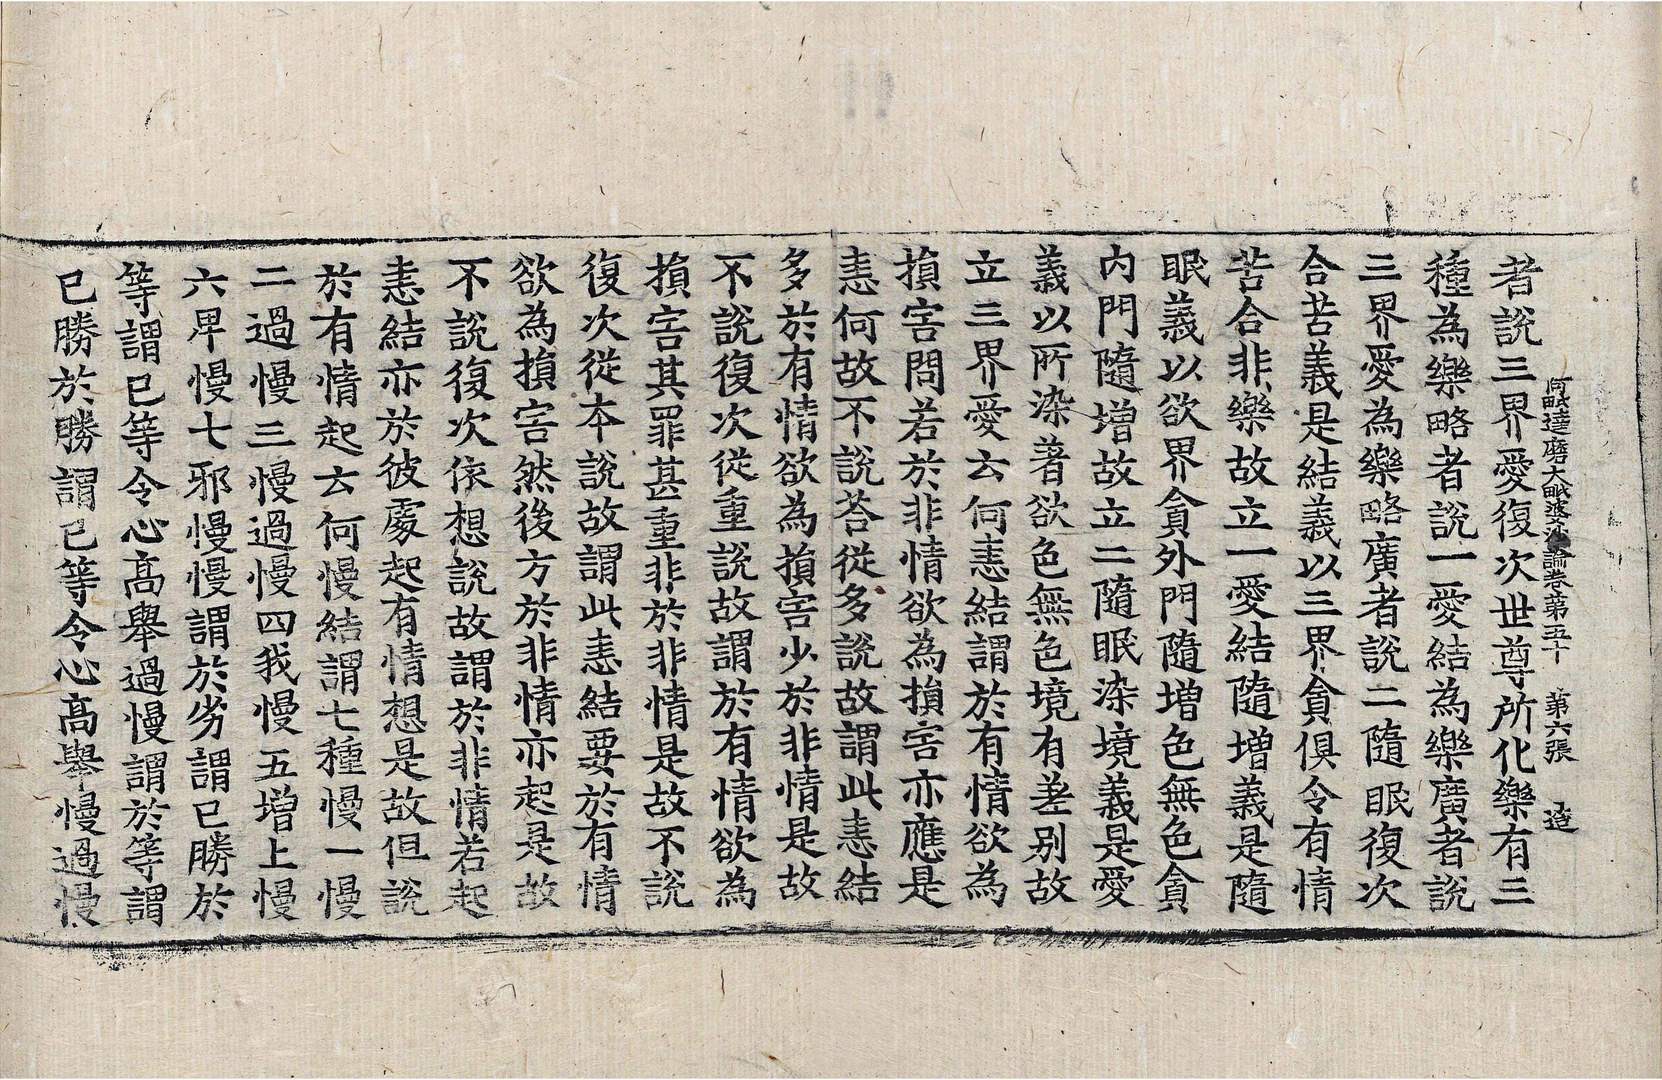 阿毗達磨大毗婆沙論卷第五十 第六張 造
者說三界愛復次世尊所化樂有三
種為樂略者說一愛結為樂廣者說
三界愛為樂略廣者說二隨眠復次
合苦義是結義以三界貪俱令有情
苦合非樂故立一愛結隨增義是隨
眠義以欲界貪外門隨增色無色貪
內門隨增故立二隨眠染境義是愛
義以所染著欲色無色境有差別故
立三界愛云何恚結謂於有情欲為
損害問若於非情欲為損害亦應是
恚何故不說荅從多說故謂此恚結
多於有情欲為損害少於非情是故
不說復次從重說故謂於有情欲為
損害其罪甚重非於非情是故不說
復次從本說故謂此恚結要於有情
欲為損害然後方於非情亦起是故
不說復次依想說故謂於非情若起
恚結亦於彼處起有情想是故但說
於有情起云何慢結謂七種慢一慢
二過慢三慢過慢四我慢五增上慢
六卑慢七邪慢慢謂於劣謂已勝於
等謂已等令心高舉過慢謂於等謂
已勝於勝謂已等令心高舉慢過慢